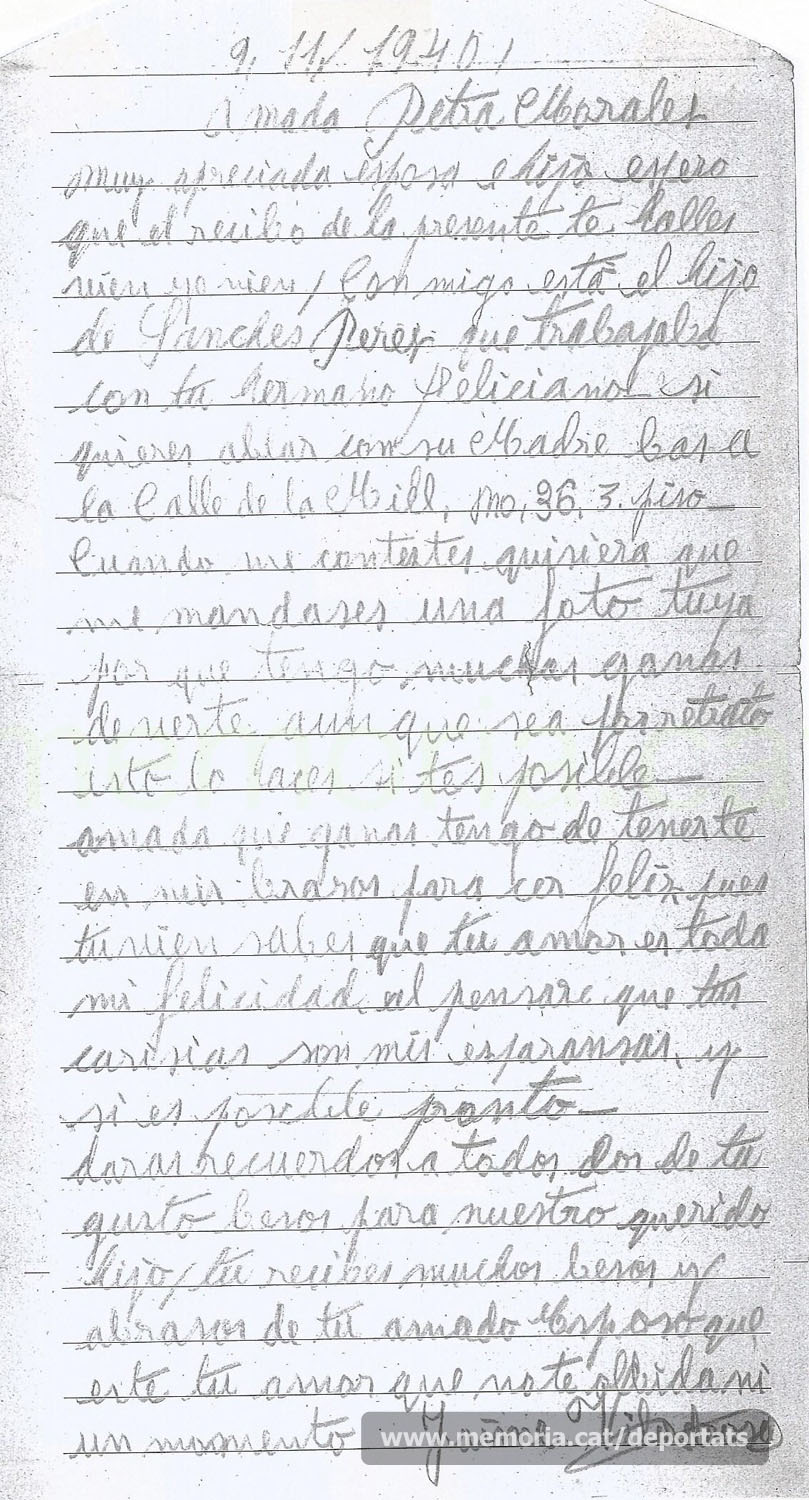 9. 11/ 1940,
Amada Petra Morales
muy apreciada esposa e hijo espero
que el recibo de la presente te halles
vien yo vien / Con migo está el hijo
de Sanches Peres que trabajaba
con tu hermano Feliciano si
quieres ablar com su Madre bas a
la Calle de la Mill, no, 36, 3. piso
Cuando me contestes quisiera que
me mandases una foto tuya
por que tengo muchas ganas
de verte aun que sea por retrato
esto lo haces si tes posible
amada que ganas tengo de tenerte
en mis brasos para cer feliz pues
tu vien sabes que tu amor es toda
mi felicidad al pensare que tus
carisias son mis esparansas, y
si es posible pronto
daras recuerdos a todos los de tu
gusto besos para nuestro querido
hijo / tu recibes muchos besos y
abrasos de tu amado Esposo que
este tu amor que no te olbida ni
un momento Jaime
www.memoria.cat/deportats